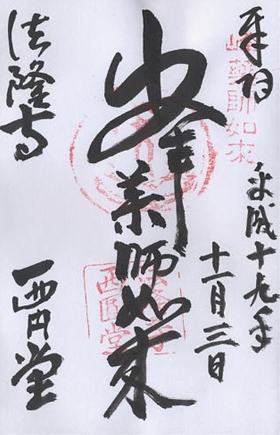 奉拝
峰藥師如來
平成十九年
十一月三日
峯薬師如来
西圓堂
法隆寺
西円堂